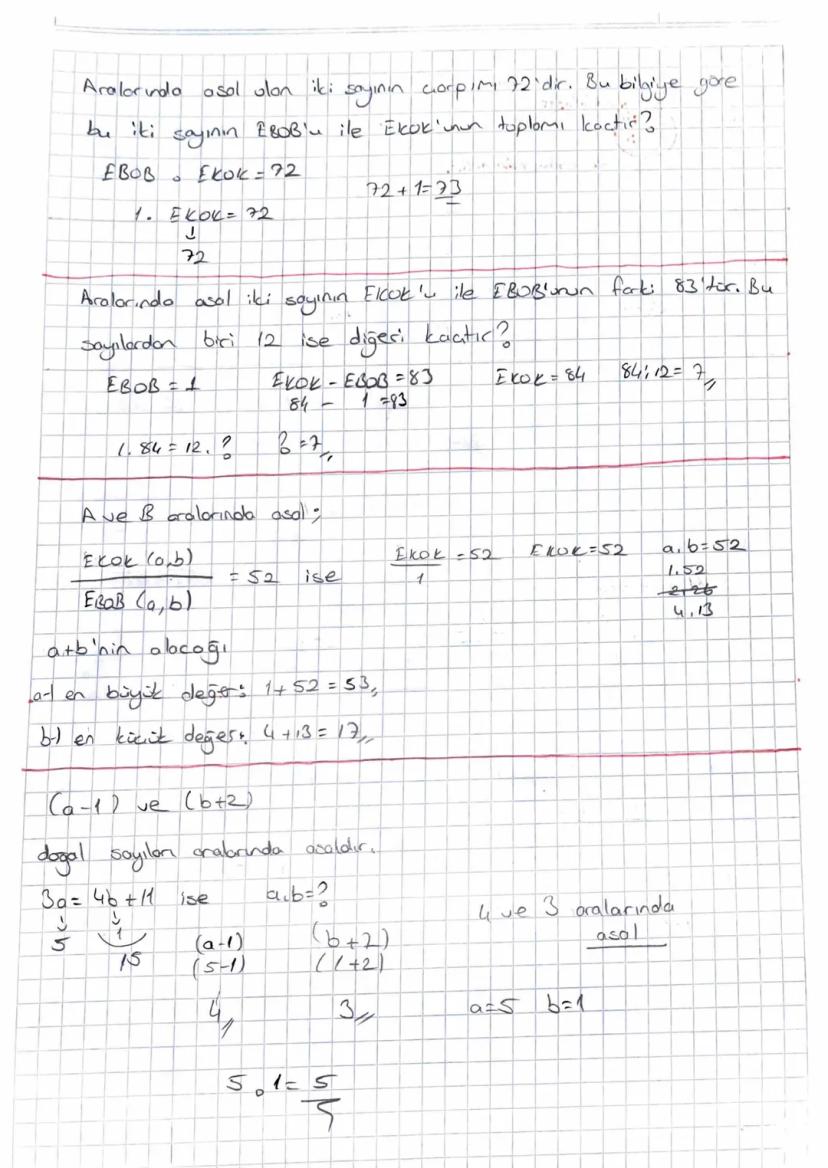 Aralarında asal olan iki sayının çarpımı 72'dir. Bu bilgiye göre
bu iki sayının EBOB'u ile EKOK'unun toplamı kaçtır?
EBOB . EKOK = 72
72 + 1 = 73
1. EKOK = 72
↓
72
Aralarında asal iki sayının EKOK'u ile EBOB'unun farkı 83'tür. Bu
sayılardan biri 12 ise diğeri kaçtır?
EBOB = 1 EKOK - EBOB = 83 EKOK = 84 84:12 = 7
84 - 1 = 83
1. 84 = 12. ? ? = 7
A ve B aralarında asal;
EKOK (a,b) / EBOB (a,b) = 52 ise EKOK / 1 = 52 EKOK = 52 a.b = 52
1.52
2.26
4.13
a+b'nin alacağı
a-) en büyük değer: 1 + 52 = 53
b-) en küçük değer: 4 + 13 = 17
(a-1) ve (b+2)
doğal sayıları aralarında asaldır.
3a = 4b + 11 ise a.b = ?
4 ve 3 aralarında
asal
↓ ↓
5 1 (a-1) (b+2)
15 (5-1) (1+2)
4 3 a=5 b=1
5 . 1 = 5
5